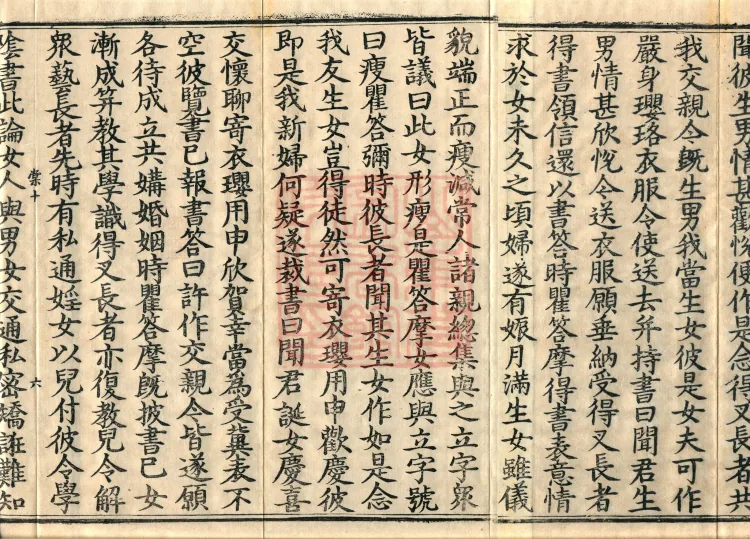 聞彼生男情甚歡悅便作是念得叉長者共
我交親令旣生男我當生女彼是女夫可作
嚴身瓔珞衣服令使送去幷持書曰聞君生
男情甚欣悅今送衣服願垂納受得叉長者
得書領信還以書答時瞿答摩得書表意情
求於女未久之頃婦遂有娠月滿生女雖儀
貌端正而瘦減常人諸親總集與之立字衆
皆議曰此女形瘦是瞿答摩女應與立字號
曰瘦瞿答彌時彼長者聞其生女作如是念
我友生女豈得徒然可寄衣瓔用申歡慶彼
即是我新婦何疑遂裁書曰聞君誕女慶喜
交懷聊寄衣瓔用申欣賀幸當為受冀表不
空彼覽書已報書答曰許作交親今皆遂願
各待成立共媾婚姻時瞿答摩旣披書已女
漸成笄教其學識得叉長者亦復教兒令解
衆藝長者先時有私通婬女以兒付彼令學
崇十 六
陰書此論女人與男女交通私密矯誑難知